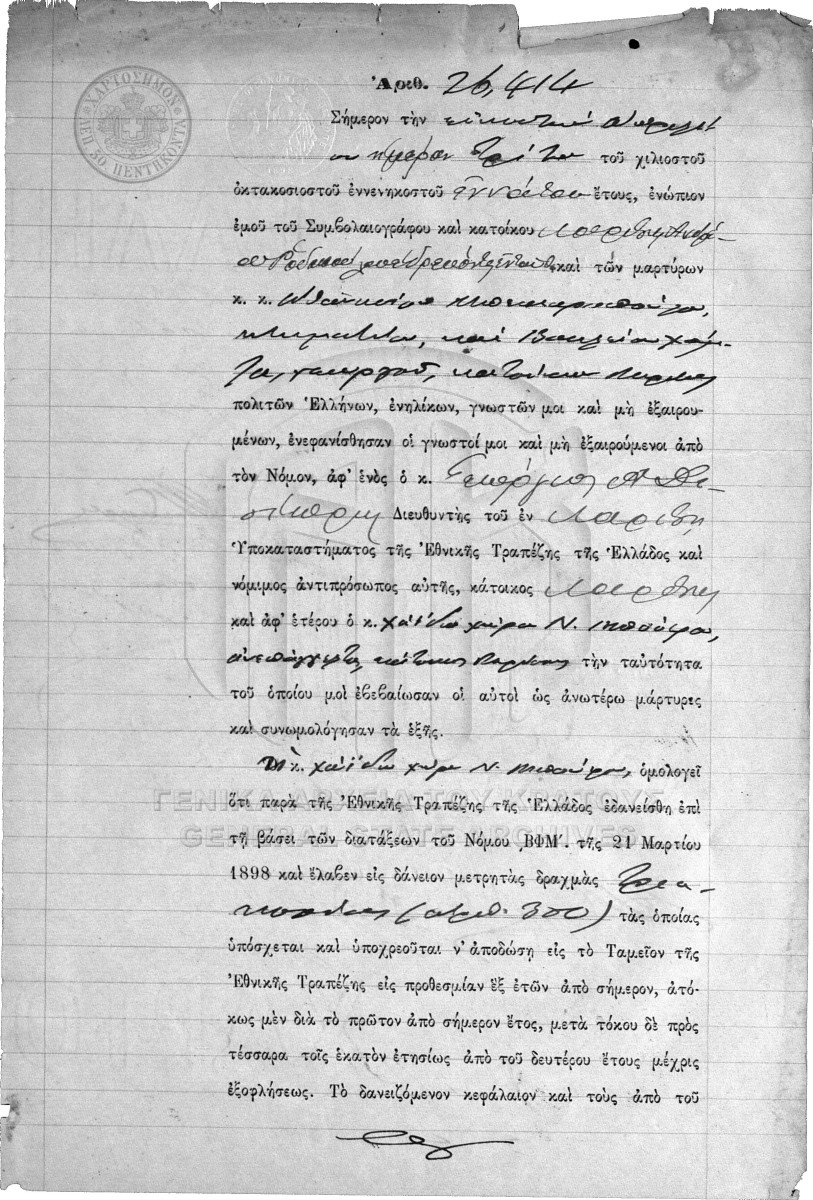 ΧΑΡΤΟΣΗΜΟΝ
ΛΕΠ. 50 ΠΕΝΤΗΚΟΝΤΑ
Ἀριθ. 26,414
Σήμερον τὴν εἰκοστὴν
ἡμέραν Τρίτην τοῦ χιλιοστοῦ
ὀκτακοσιοστοῦ ἐννενηκοστοῦ ἐννάτου ἔτους, ἐνώπιον
ἐμοῦ τοῦ Συμβολαιογράφου καὶ κατοίκου Λαρίσσης
καὶ τῶν μαρτύρων
κ. κ. Ἀθανασίου
κτηματίου, καὶ Βασιλείου
γεωργοῦ, κατοίκων Λαρίσσης
πολιτῶν Ἑλλήνων, ἐνηλίκων, γνωστῶν μοι καὶ μὴ ἐξαιρου-
μένων, ἐνεφανίσθησαν οἱ γνωστοί μοι καὶ μὴ ἐξαιρούμενοι ἀπὸ
τὸν Νόμον, ἀφ' ἑνὸς ὁ κ. Γεώργιος
Διευθυντὴς τοῦ ἐν Λαρίσῃ
Ὑποκαταστήματος τῆς Ἐθνικῆς Τραπέζης τῆς Ἑλλάδος καὶ
νόμιμος ἀντιπρόσωπος αὐτῆς, κάτοικος Λαρίσσης
καὶ ἀφ' ἑτέρου ὁ κ. Χάϊδω χήρα Ν.
κάτοικος Λαρίσσης τὴν ταὐτότητα
τοῦ ὁποίου μοὶ ἐβεβαίωσαν οἱ αὐτοὶ ὡς ἀνωτέρω μάρτυρες
καὶ συνωμολόγησαν τὰ ἑξῆς.
Ἡ κ. Χάϊδω χήρα Ν. ὁμολογεῖ
ὅτι παρὰ τῆς Ἐθνικῆς Τραπέζης τῆς Ἑλλάδος ἐδανείσθη ἐπὶ
τῇ βάσει τῶν διατάξεων τοῦ Νόμου ͵ΒΦΜ΄. τῆς 21 Μαρτίου
1898 καὶ ἔλαβεν εἰς δάνειον μετρητὰς δραχμὰς τρια-
κοσίας (ἀριθ. 300) τὰς ὁποίας
ὑπόσχεται καὶ ὑποχρεοῦται ν' ἀποδώσῃ εἰς τὸ Ταμεῖον τῆς
Ἐθνικῆς Τραπέζης εἰς προθεσμίαν ἓξ ἐτῶν ἀπὸ σήμερον, ἀτό-
κως μὲν διὰ τὸ πρῶτον ἀπὸ σήμερον ἔτος, μετὰ τόκου δὲ πρὸς
τέσσαρα τοῖς ἑκατὸν ἐτησίως ἀπὸ τοῦ δευτέρου ἔτους μέχρις
ἐξοφλήσεως. Τὸ δανειζόμενον κεφάλαιον καὶ τοὺς ἀπὸ τοῦ
ΓΕΝΙΚΑ ΑΡΧΕΙΑ ΤΟΥ ΚΡΑΤΟΥΣ
GENERAL STATE ARCHIVES